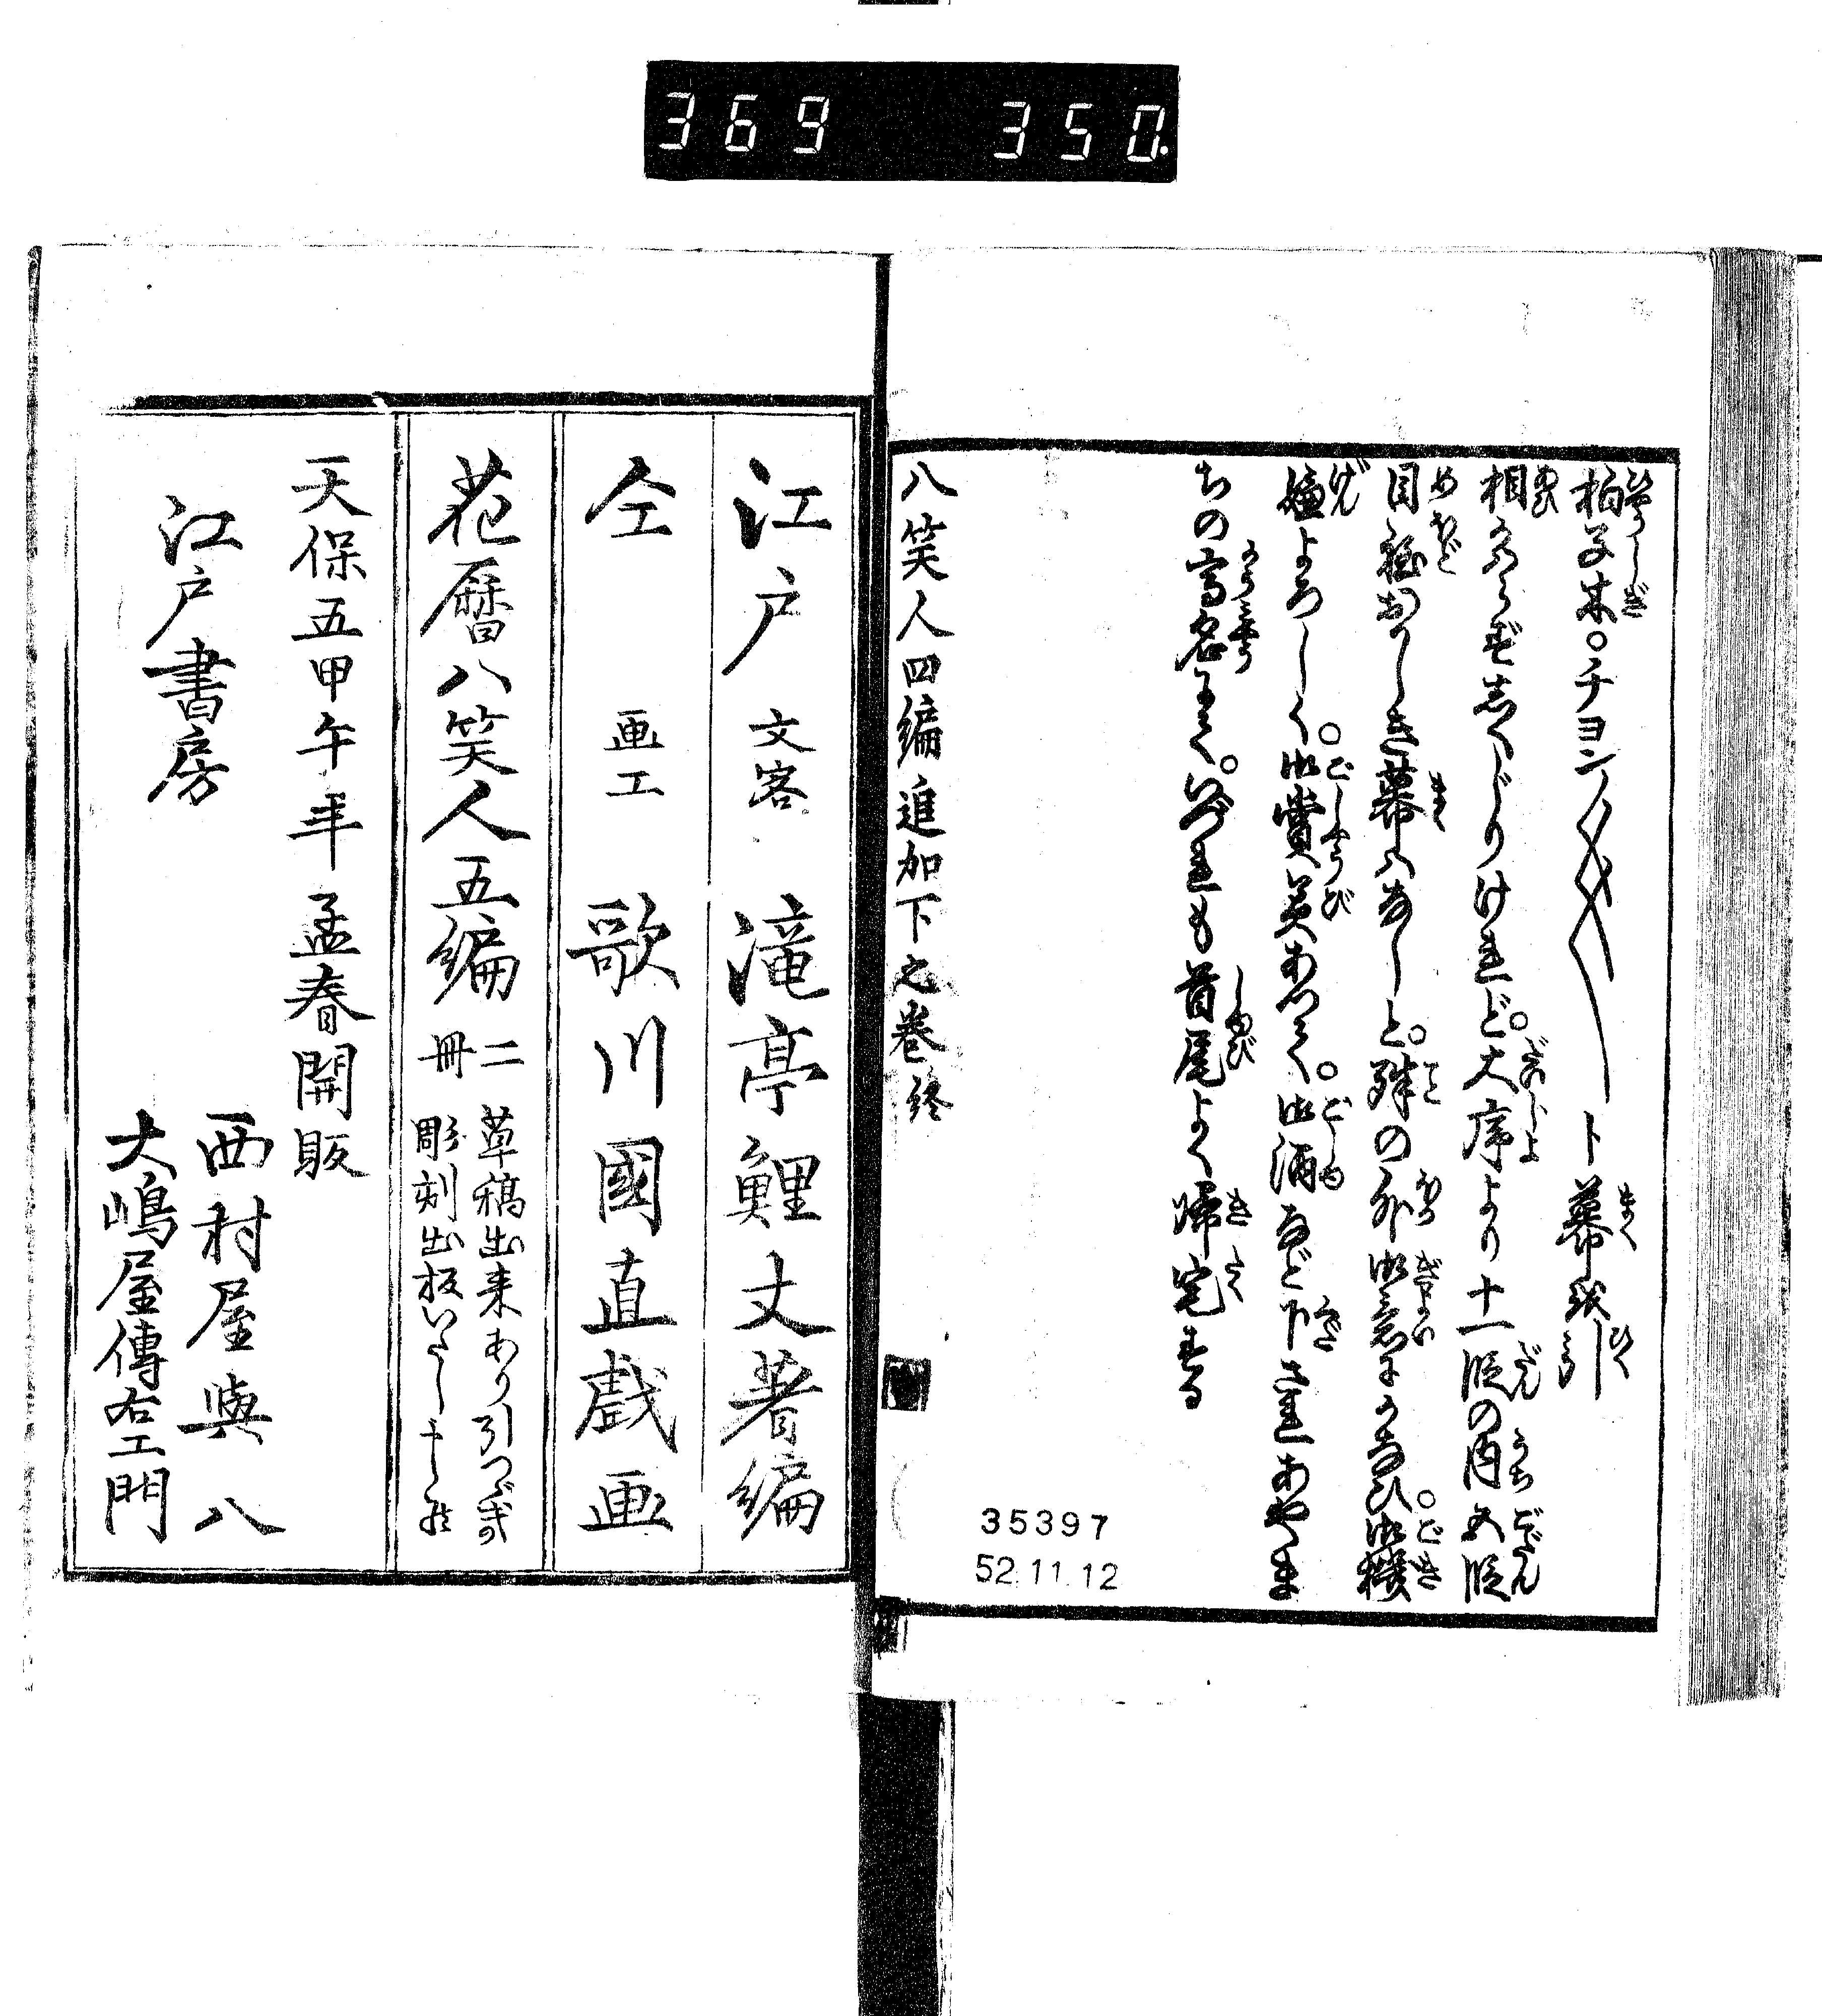 369 350.
拍子木。チヨン〳〵〳〵〳〵ト幕を引
相かはらずしくじりけれど。大序より十一段の内五段
目程おかしき幕ハなしと。殊の外御意にかなひ。御機
嫌よろしく。御賞美あつて。御酒など下されあやま
ちの高名にて。いづれも首尾よく帰宅する
八笑人四編追加下之巻終
35397
52.11.12
江戸 文客 滝亭鯉丈著編
仝 画工 歌川國直戲画
花暦八笑人五編 二冊 草稿出来あり引つゞき
彫刻出板いたし
天保五甲午年孟春開販
江戸書房
西村屋與八
大嶋屋傳右エ門